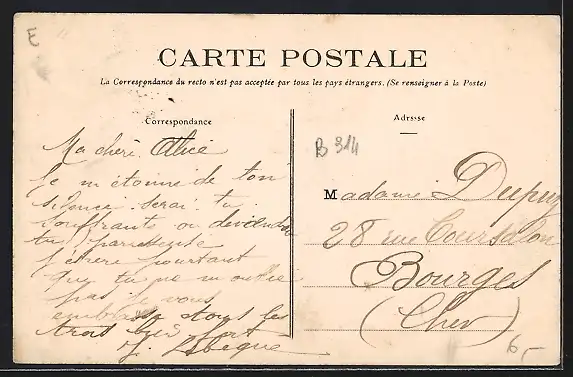 E
CARTE POSTALE
La Correspondance du recto n'est pas acceptée par tous les pays étrangers. (Se renseigner à la Poste)
Correspondance
Ma chère Alice
Je m étonne de ton
silence serai tu
souffrante ou deviendrai
tu paresseuse
j espere pourtant
que tu ne m oublie
pas je vous
embrasse tous les
trois bien fort
Adresse
B 314
Madame Dupuy
28 rue Coursalon
Bourges
(Cher)
6,-